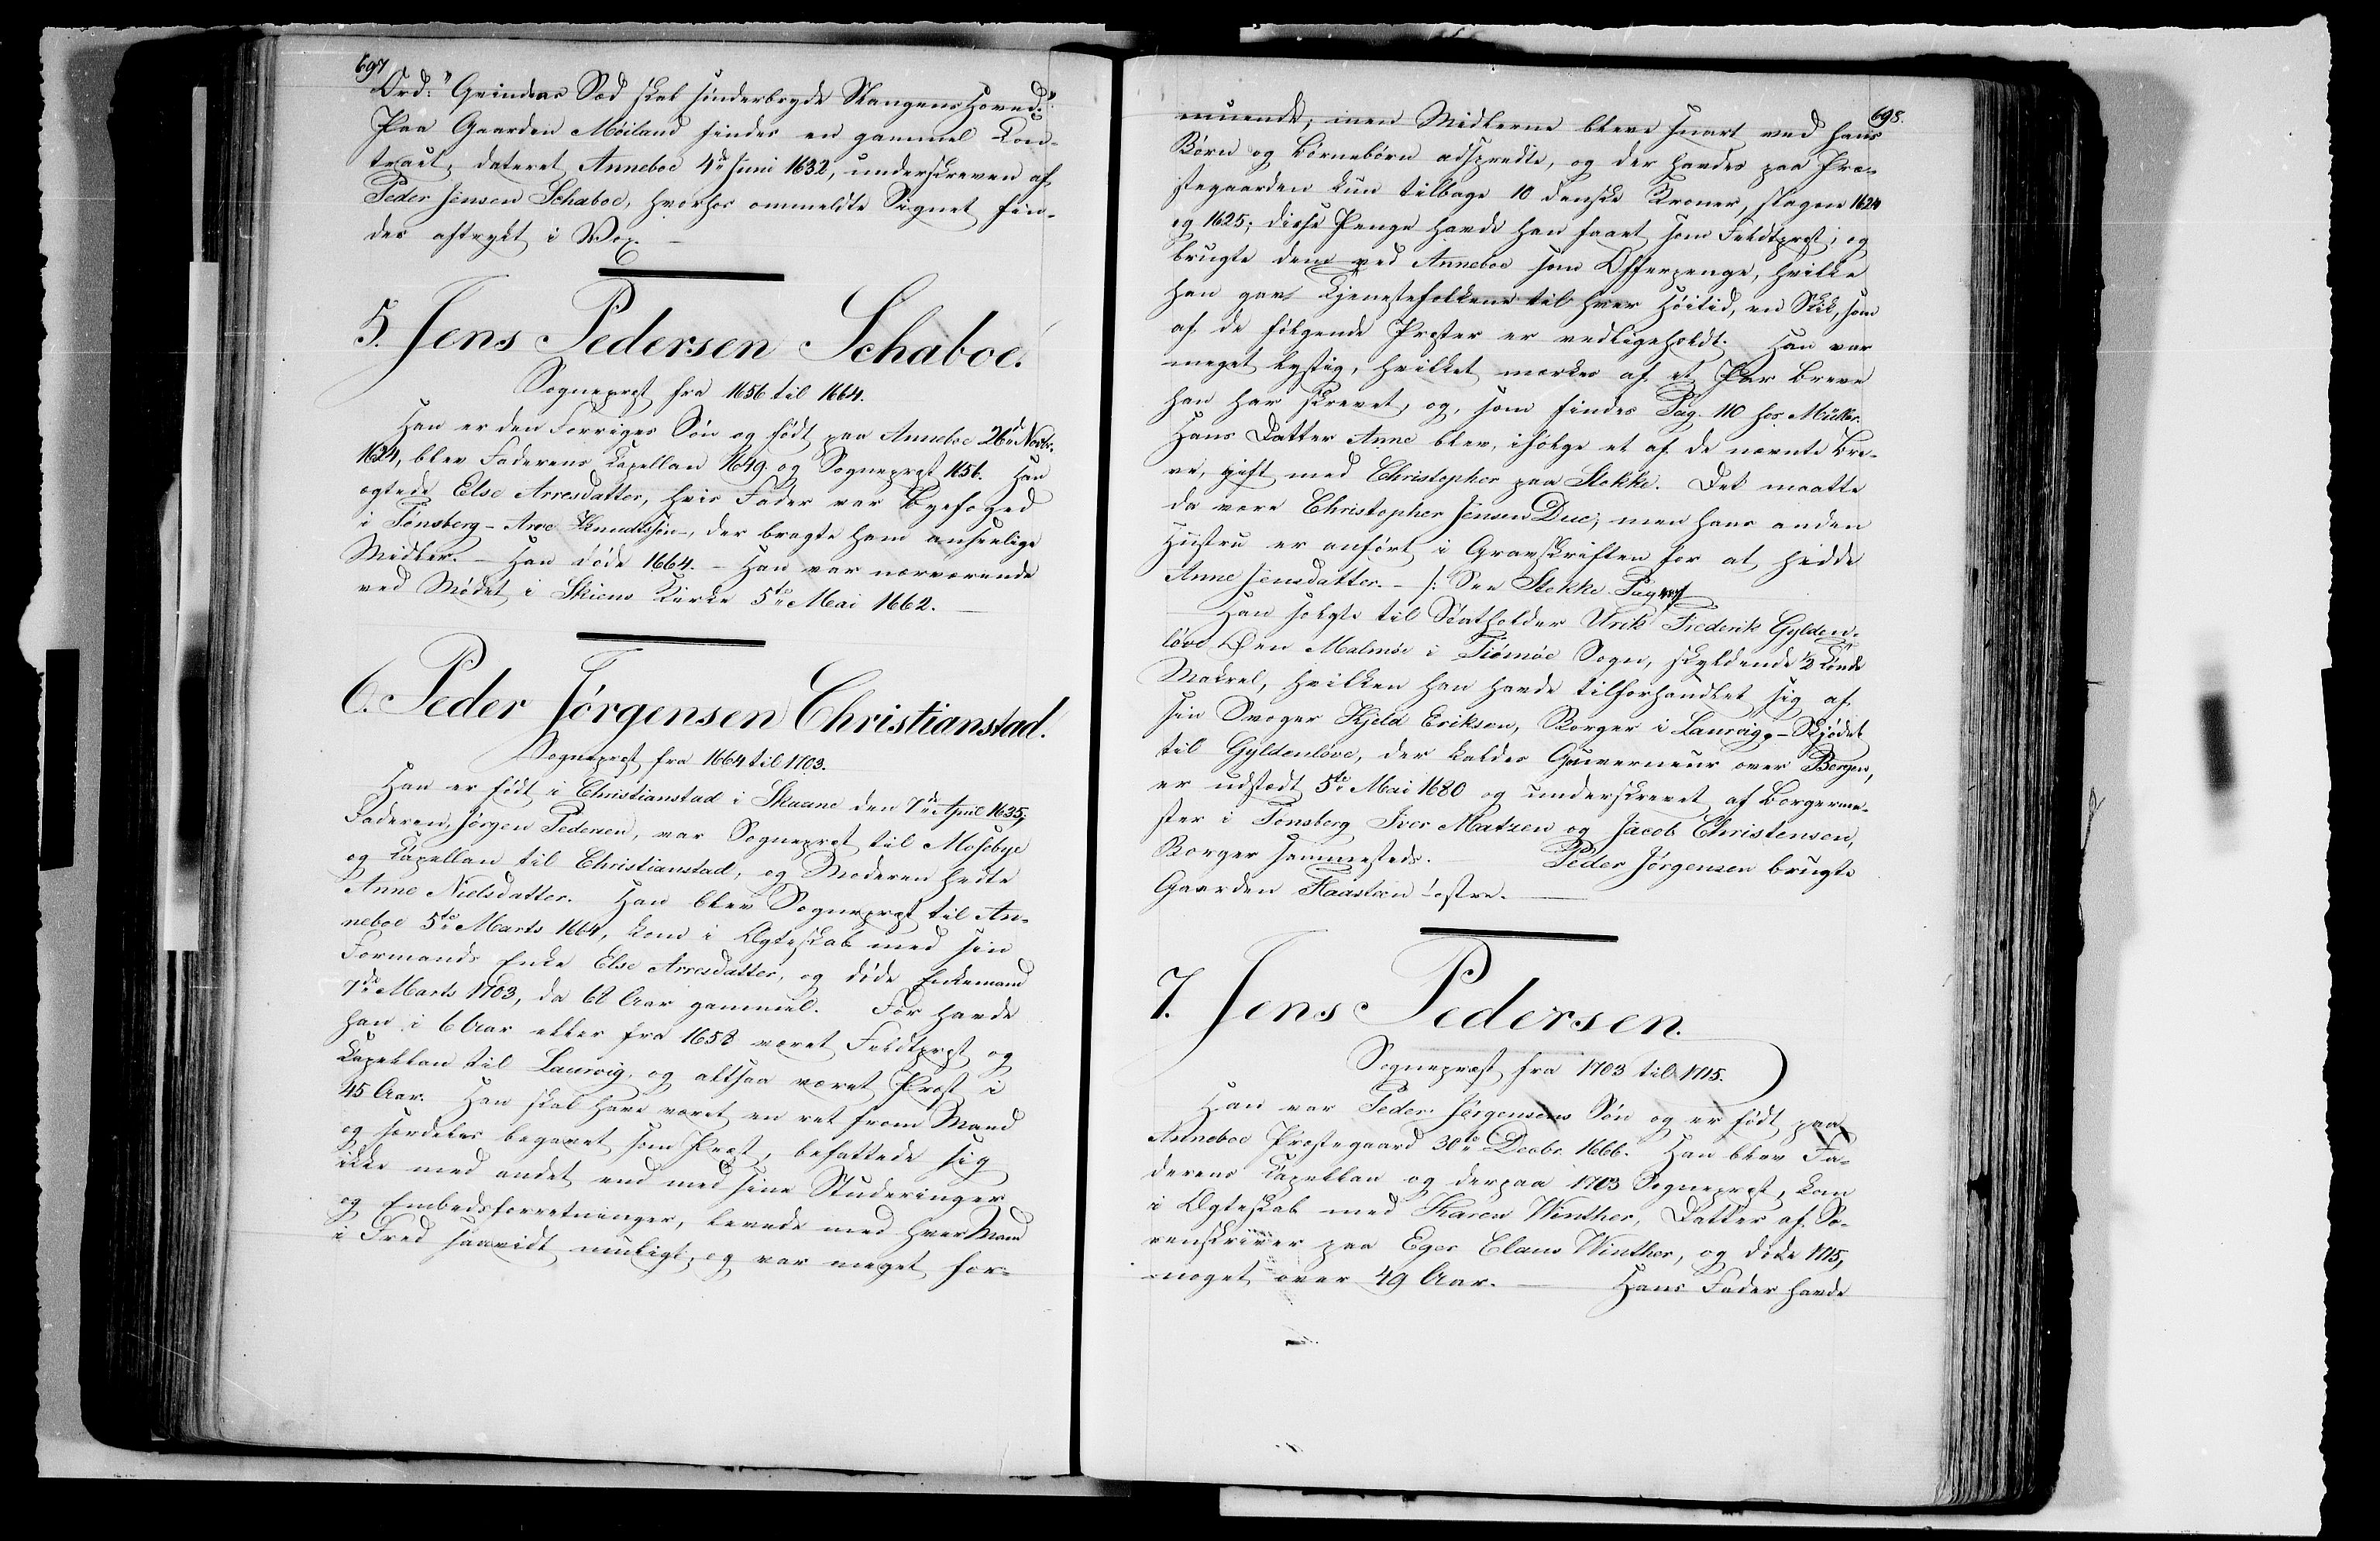 697
Ord: "Qvindens Sæd skal sønderbryde Slangens Hoved."
Paa Gaarden Møiland findes en gammel Con-
tract, dateret Anneboe 4de Juni 1632, underskreven af
Peder Jensen Schaboe, hvorhos ommeldte Signet fin-
des aftrykt i Vox. —
5. Jens Pedersen Schaboe.
Sognepræst fra 1656 til 1664.
Han er den Forriges Søn og født paa Anneboe 26de Novbr.
1624, blev Faderens Kapellan 1649 og Sognepræst 1656. Han
ægtede Else Arvesdatter, hvis Fader var Byefoged
i Tønsberg - Arve Knudtssøn -, der bragte ham anseelige
Midler. — Han døde 1664. — Han var nærværende
ved Mødet i Skiens Kirke 5te Mai 1662. —
6. Peder Jørgensen Christianstad.
Sognepræst fra 1664 til 1703.
Han er født i Christianstad i Skaane den 7de April 1635;
Faderen, Jørgen Pedersen, var Sognepræst til Mosebye
og Kapellan til Christianstad, og Moderen hedte
Anne Nielsdatter. Han blev Sognepræst til An-
neboe 5te Marts 1664, kom i Ægteskab med sin
Formands Enke Else Arvesdatter, og døde Enkemand
7de Marts 1703, da 68 Aar gammel. Før havde
han i 6 Aar eller fra 1658 været Feldtpræst og
Kapellan til Laurvig, og altsaa været Præst i
45 Aar. Han skal have været en ret from Mand
og særdeles begavet som Præst, befattede sig
ikke med andet end med sine Studeringer
og Embedsforretninger, levede med hver Mand
i Fred saavidt muligt, og var meget for-
698.
muende; men Midlerne bleve snart ved hans
Børn og Børnebørn adspredte, og der havdes paa Præ-
stegaarden kun tilbage 10 danske Kroner, slagne 1624
og 1625; disse Penge havde han faaet som Feldtpræst, og
brugte dem ved Anneboe som Offerpenge, hvilke
han gav Tjenestefolkene til hver Høitid, en Skik, som
af de følgende Præster er vedligeholdt. Han var
meget lystig, hvilket mærkes af et Par Breve
han har skrevet, og, som findes Pag. 110 hos Müller.
Hans Datter Anne blev, ifølge et af de nævnte Bre-
ve, gift med Christopher paa Stokke. Det maatte
da være Christopher Jensen Due; men hans anden
Hustru er anført i Gravskriften for at hedde
Anne Jensdatter. — /: See Stokke Pag
Han solgte til Statholder Ulrik Friederik Gylden-
løve Øen Malmøe i Tiømøe Sogn, skyldende ½ Tønde
Makrel, hvilken han havde tilforhandlet sig af
sin Svoger Kjeld Eriksen, Borger i Laurvig. - Skjødet
til Gyldenløve, der kaldes Guverneur over Bergen,
er udstædt 5te Mai 1680 og underskrevet af Borgerme-
ster i Tønsberg Iver Matzen og Jacob Christensen,
Borger sammesteds. Peder Jørgensen brugte
Gaarden Haastæen østre. —
7. Jens Pedersen.
Sognepræst fra 1703 til 1715.
Han var Peder Jørgensens Søn og er født paa
Anneboe Præstegaard 30te Decbr. 1666. Han blev Fa-
derens Kapellan og derpaa 1703 Sognepræst, kom
i Ægteskab med Karen Winther, Datter af So-
renskriver paa Eger Claus Winther, og døde 1715,
noget over 49 Aar. — Hans Fader havde